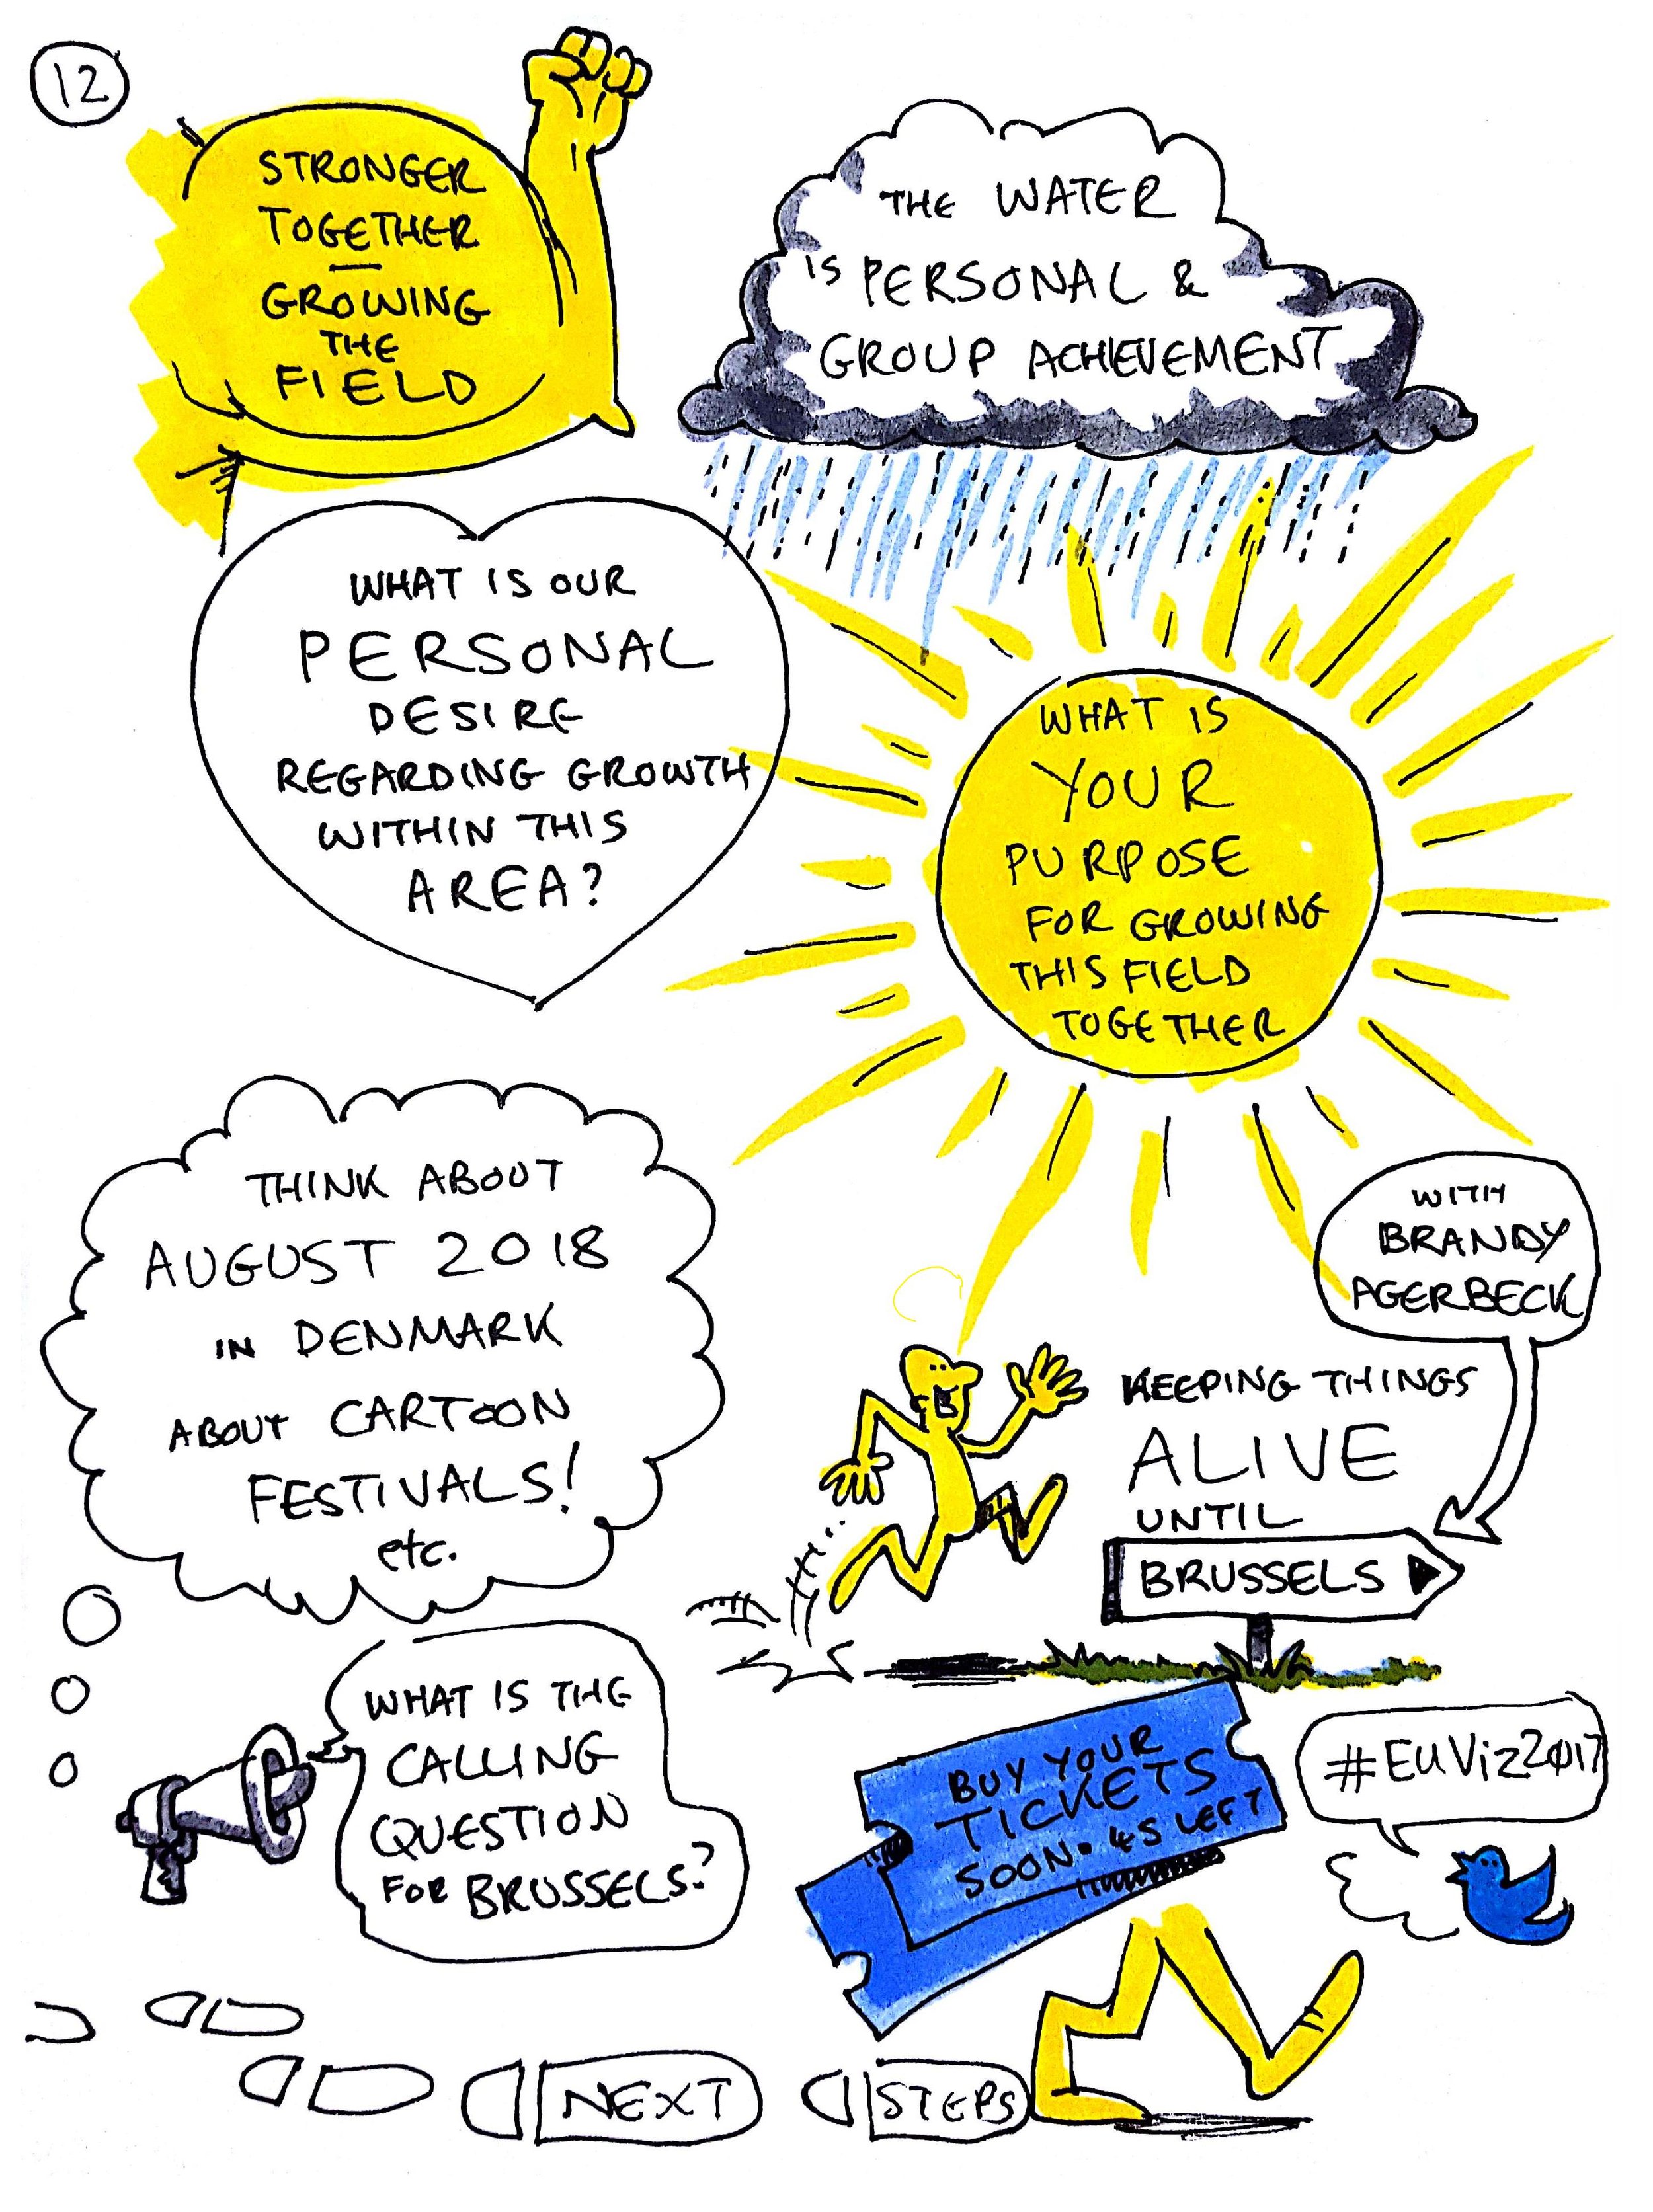 12
STRONGER
TOGETHER
—
GROWING
THE
FIELD
THE WATER
IS PERSONAL &
GROUP ACHIEVEMENT
WHAT IS OUR
PERSONAL
DESIRE
REGARDING GROWTH
WITHIN THIS
AREA?
WHAT IS
YOUR
PURPOSE
FOR GROWING
THIS FIELD
TOGETHER
THINK ABOUT
AUGUST 2018
IN DENMARK
ABOUT CARTOON
FESTIVALS!
etc.
WITH
BRANDY
AGERBECK
KEEPING THINGS
ALIVE
UNTIL
BRUSSELS
WHAT IS THE
CALLING
QUESTION
FOR BRUSSELS?
BUY YOUR
TICKETS
SOON. 45 LEFT
#EUViz2017
NEXT
STEPS